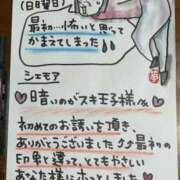 (日曜日)
最初…怖いと思って
かまえてしまった
シェモア
♡暗いのがスキ王子様へ
初めてのお誘いを頂き、
ありがとうございました♪♪最初の
印象と違って、とてもやさしい
あなた様にホッとしました